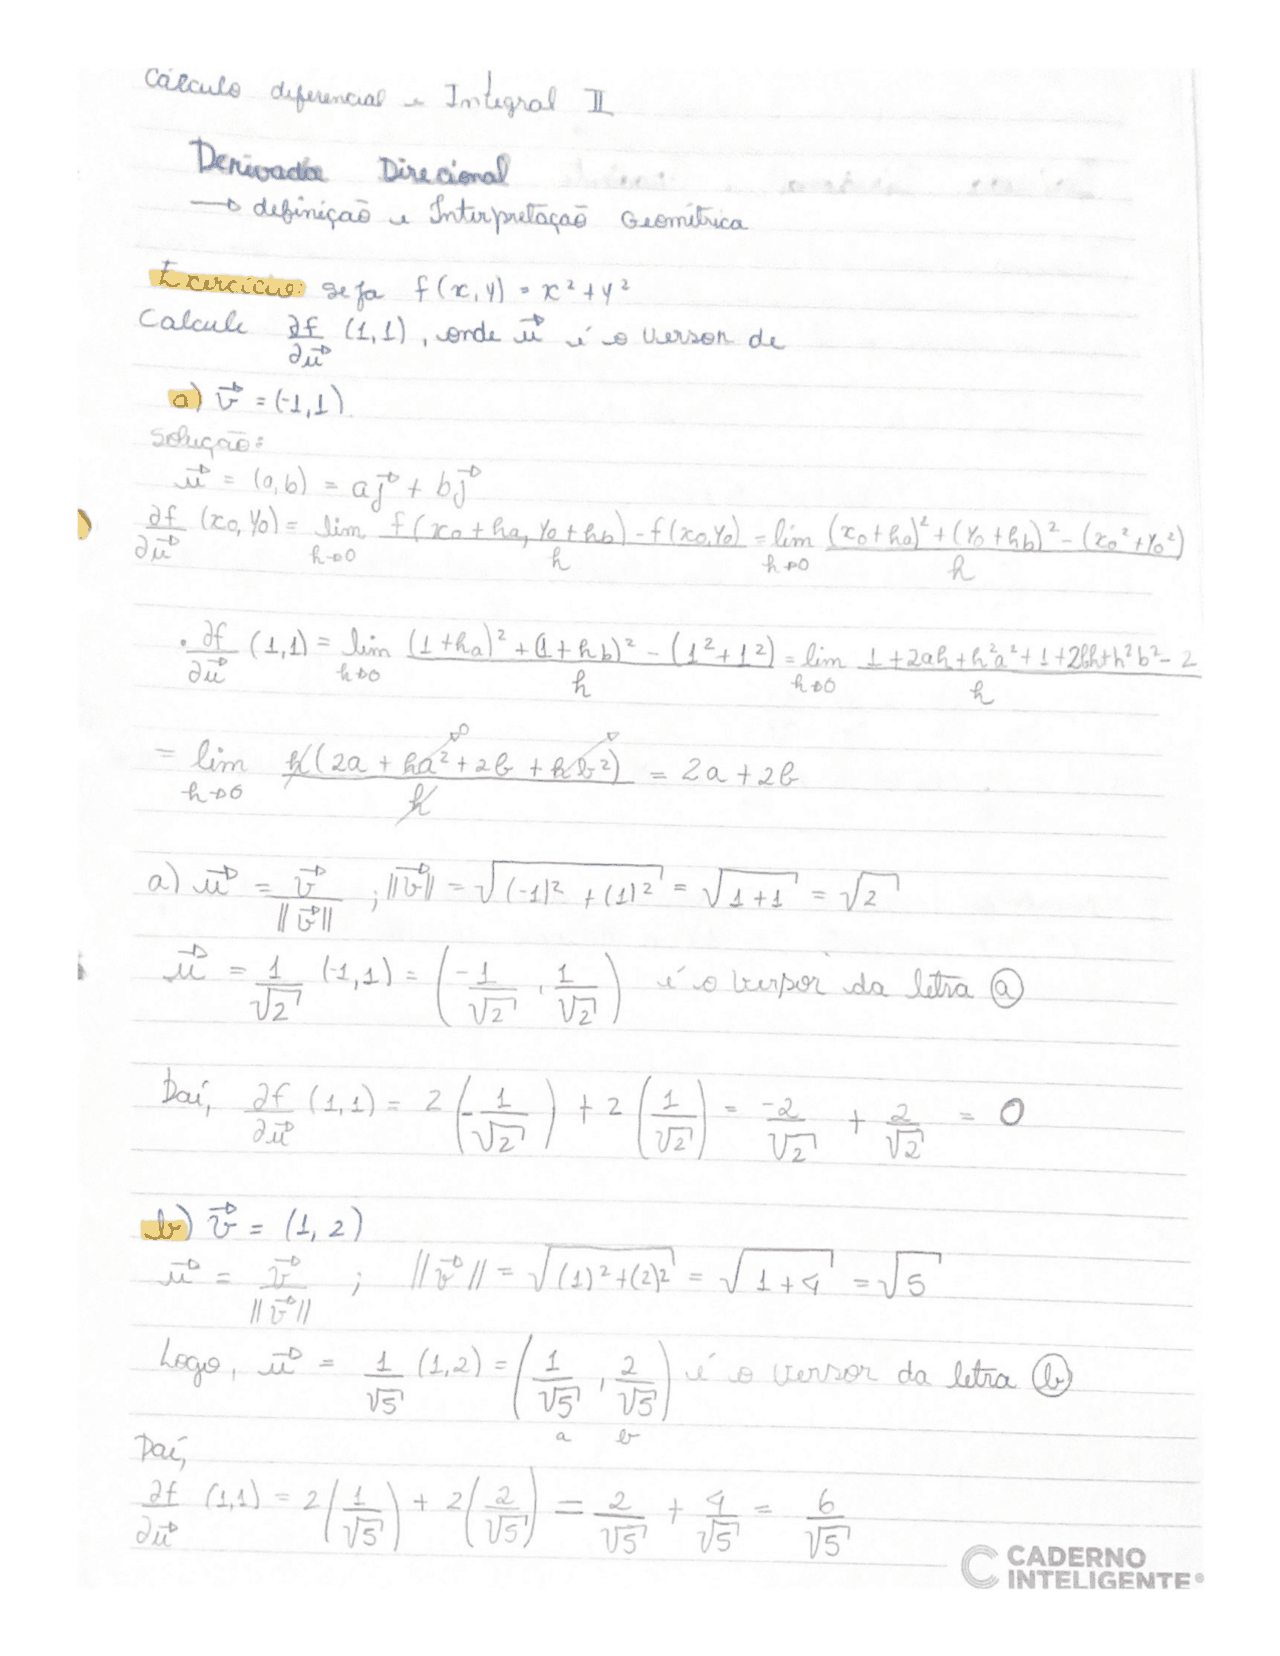 Cálculo diferencial e Integral II
Derivada Direcional
→ definição e Interpretação Geométrica
Exercício: seja f(x,y) = x² + y²
Calcule ∂f/∂u⃗ (1,1), onde u⃗ é o versor de
a) v⃗ = (-1,1).
Solução:
u⃗ = (a,b) = aj⃗ + bj⃗
∂f/∂u⃗ (x₀,y₀) = lim h→0 (f(x₀+ha, y₀+hb) - f(x₀,y₀))/h = lim h→0 ((x₀+ha)² + (y₀+hb)² - (x₀²+y₀²))/h
• ∂f/∂u⃗ (1,1) = lim h→0 ((1+ha)² + (1+hb)² - (1²+1²))/h = lim h→0 (1+2ah+h²a²+1+2bh+h²b²-2)/h
= lim h→0 h(2a + ha² + 2b + hb²)/h = 2a + 2b
a) u⃗ = v⃗/||v⃗|| ; ||v⃗|| = √((-1)² + (1)²) = √(1+1) = √2
u⃗ = 1/√2 (-1,1) = (-1/√2, 1/√2) é o verpor da letra ⓐ
Daí, ∂f/∂u⃗ (1,1) = 2(-1/√2) + 2(1/√2) = -2/√2 + 2/√2 = 0
b) v⃗ = (1,2)
u⃗ = v⃗/||v⃗|| ; ||v⃗|| = √((1)²+(2)²) = √(1+4) = √5
Logo, u⃗ = 1/√5 (1,2) = (1/√5, 2/√5) é o versor da letra ⓑ
a b
Daí,
∂f/∂u⃗ (1,1) = 2(1/√5) + 2(2/√5) = 2/√5 + 4/√5 = 6/√5
CADERNO
INTELIGENTE®